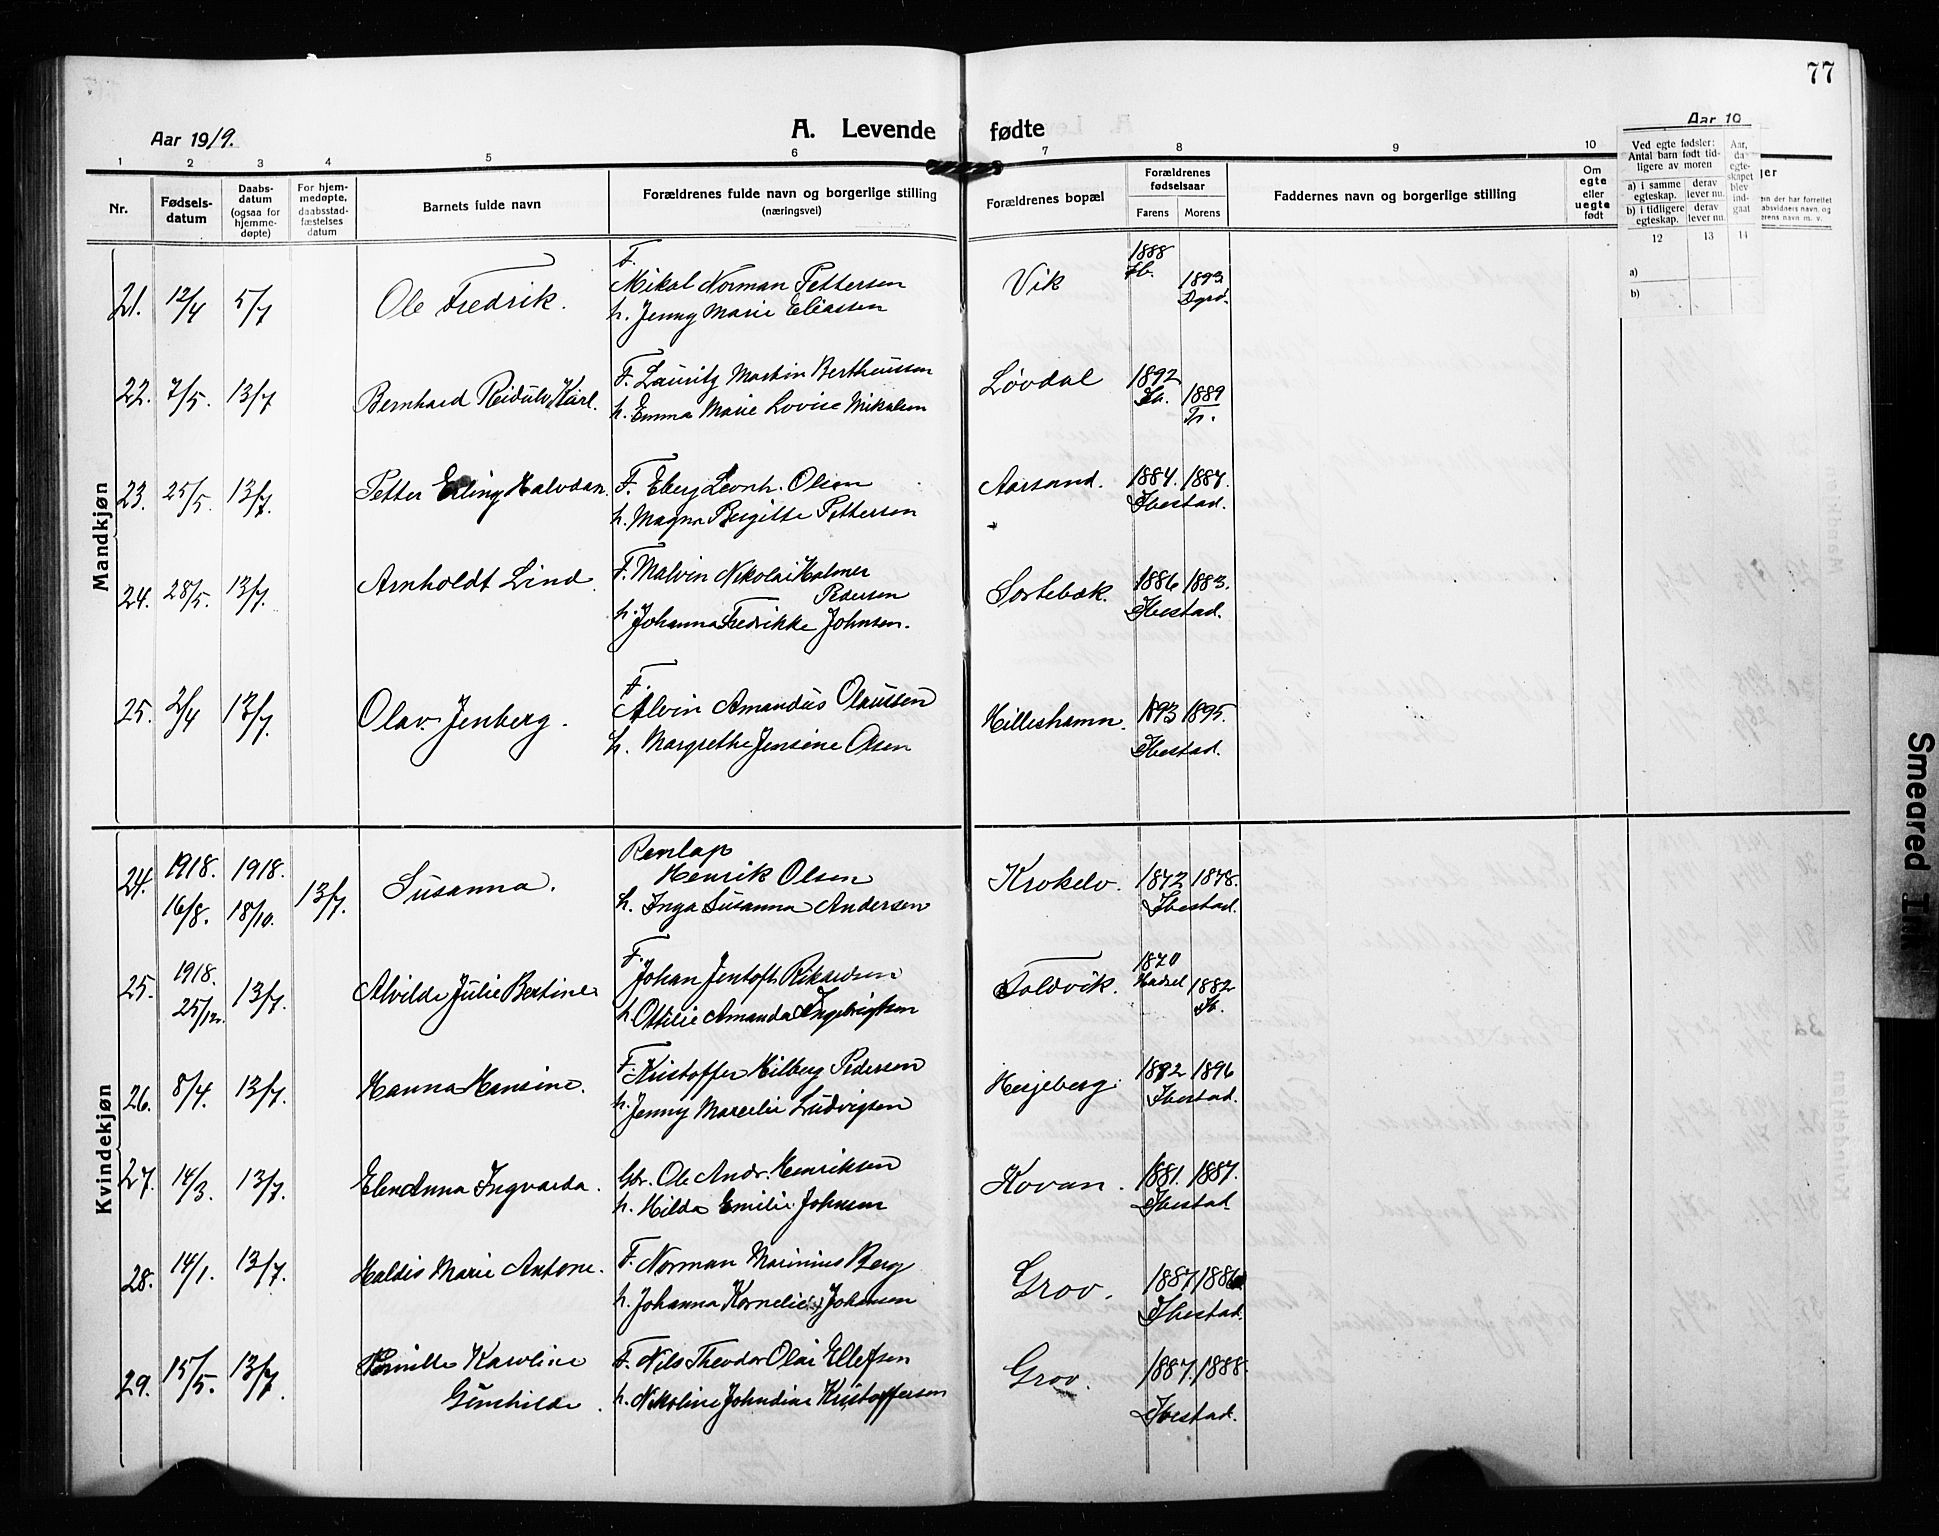 77
Aar 1919.
A. Levende fødte
Aar 19
1 2 3 4 5 6 7 8 9 10
Nr.
Fødsels-
datum
Daabs-
datum
(ogsaa for
hjemme-
døpte)
For hjem-
medøpte,
daabsstad-
fæstelses
datum
Barnets fulde navn
Forældrenes fulde navn og borgerlige stilling
(næringsvei)
Forældrenes bopæl
Forældrenes
fødselsaar
Farens Morens
Faddernes navn og borgerlige stilling
Om
egte
eller
uegte
født
Ved egte fødsler:
Antal barn født tid-
ligere av moren
a) i samme
egteskap.
derav
lever nu.
b) i tidligere
egteskap.
derav
lever nu.
Aar,
da
egte-
skapet
blev
ind-
gaat
12 13 14
a)
b)
Mandkjøn
21. 12/4 5/7 Ole Fredrik.
F.
Mikal Norman Pettersen
h. Jenny Marie Eliassen
Vik 1888 Ib. 1893 Dyrø.
22. 7/5. 13/7 Bernhard Reidulv Karl.
F. Lauritz Martin Bertheussen
h. Emma Marie Lovise Mikalsen
Løvdal 1892 Ib. 1889 Tr.
23. 25/5. 13/7. Petter Erling Halvdan.
F. Eberg Leonh. Olsen
h. Magna Bergitte Pettersen
Aarsand. 1884. 1887.
Ibestad.
24. 28/5. 13/7. Arnholdt Lind.
F. Malvin Nikolai Halmer
Pedersen
h. Johanna Fredrikke Johnsen.
Sortebæk. 1886 1883.
Ibestad.
25. 2/4 13/7. Olav Jenberg.
F.
Alvin Amandus Olaussen
h. Margrethe Jensine Olsen
Hilleshamn. 1893 1895.
Ibestad.
Kvindekjøn
24. 1918. 16/8. 1918. 18/10. 13/7. Susanna.
Henrik Olsen
h. Inga Susanna Andersen
Krokelv. 1872 1878.
Ibestad.
25. 1918. 25/12. 13/7. Alvilde Julie Bertine
F.
Johan Jentoft Rikardsen
h. Ottilie Amanda Ingebrigtsen
Foldvik. 1870 Hadsel 1882 Ib.
26. 8/4. 13/7. Hanna Hansine.
F. Kristoffer Hilberg Pedersen
h. Jenny Marselie Ludvigsen
Hesjeberg. 1882 1896
Ibestad.
27. 14/3. 13/7. Elen Anna Ingvarda.
Gbr. Ole Andr. Henriksen
h. Hilda Emilie Johnsen
Kovan. 1881. 1887.
Ibestad.
28. 14/1. 13/7. Haldis Marie Antone.
F. Norman Marinius Berg
h. Johanna Kornelie Johansen
Grov. 1887 1886
Ibestad.
29. 15/5. 13/7. Pernille Karoline
Gunhilde.
F. Nils Theodor Olai Ellefsen
h. Nikoline Johndine Kristoffersen
Grov. 1887. 1888.
Ibestad.
Smeared Ink